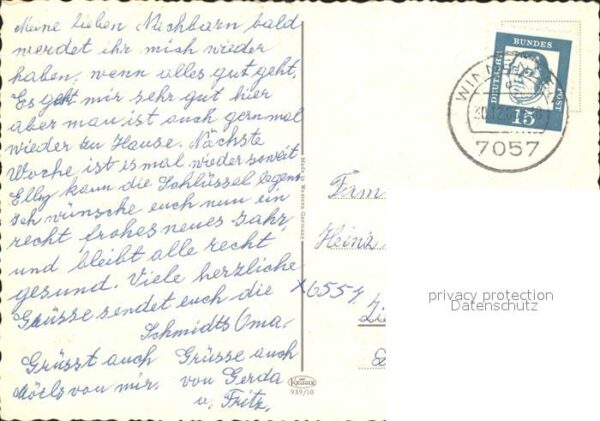 Meine lieben Nachbarn bald
werdet ihr mich wieder
haben, wenn alles gut geht.
Es geht mir sehr gut hier
aber man ist auch gern mal
wieder zu Hause. Nächste
Woche, ist es mal wieder soweit
Elly kann die Schlüssel legen
ich wünsche euch nun ein
recht frohes neues Jahr,
und bleibt alle recht
gesund. Viele herzliche
Grüsse sendet euch die
Schmidts Oma.
Grüsst auch
von mir.
Grüsse auch
von Gerda
u. Fritz.
Made in Western Germany
Krüger
939/10
DEUTSCHE
BUNDES
POST
15
WINN
30.12.
7057
Fam
Heinz
X6554
privacy protection
Datenschutz